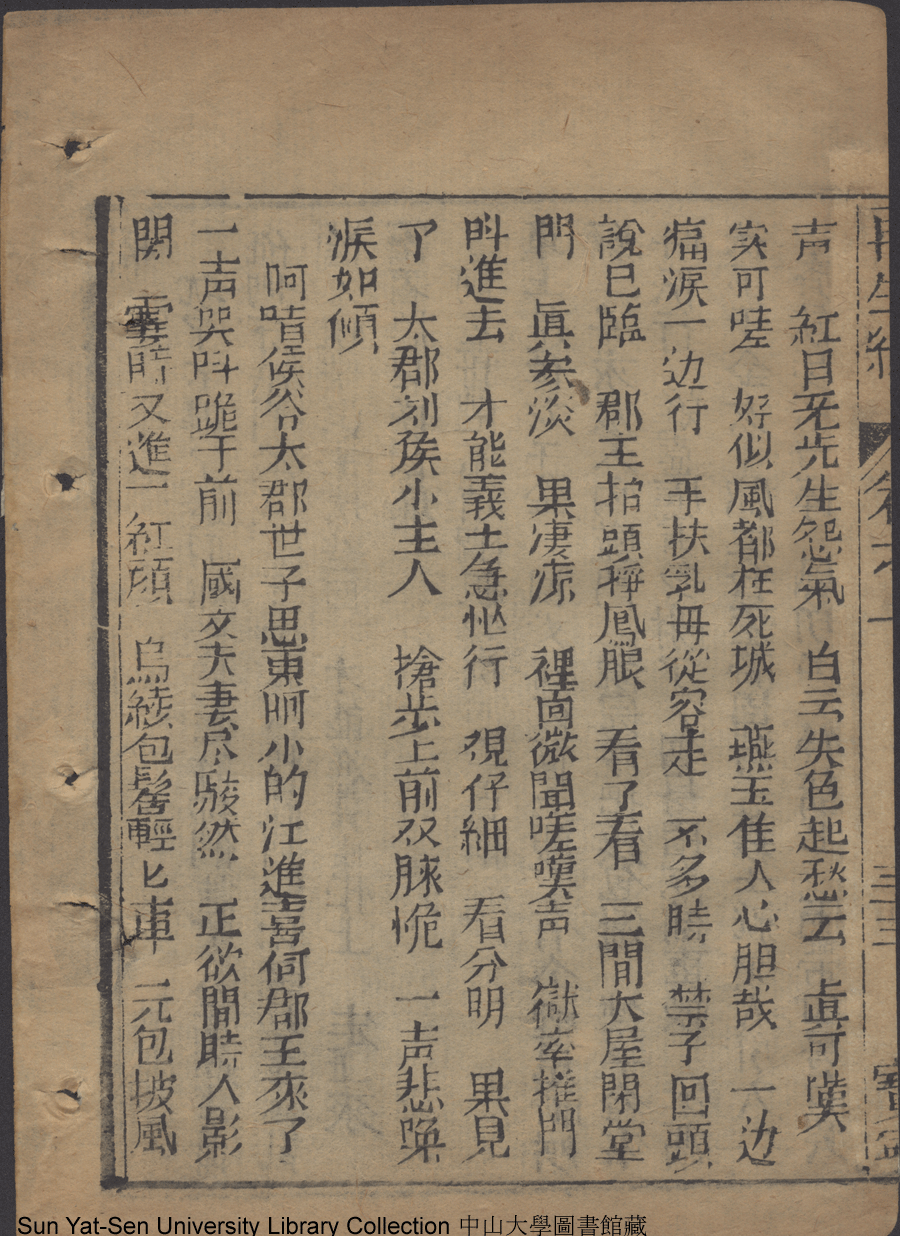 再生緣 卷之十一 三三
声 紅日无光生怨氣 白云失色起愁云 真可嘆
实可嗟 好似風都枉死城 燕玉佳人心胆哉 一边
痛淚一边行 手扶乳母從容走 不多時 禁子回頭
說已臨 郡主抬頭稱鳳眼 看了看 三間大屋閉堂
門 真参淡 果凄凉 裡面微聞嗟嘆声 獄卒推門
呌進去 才能義士急忙行 視仔細 看分明 果見
了 太郡刘侯小主人 搶步上前双膝恑 一声悲喚
淚如傾
呵唶侯爷太郡世子思東呵小的江進喜伺郡主來了
一声哭呌跪于前 國丈夫妻尽駭然 正欲聞時人影
関 霎時又進一紅顔 烏綾包髩輕匕車 元包披風